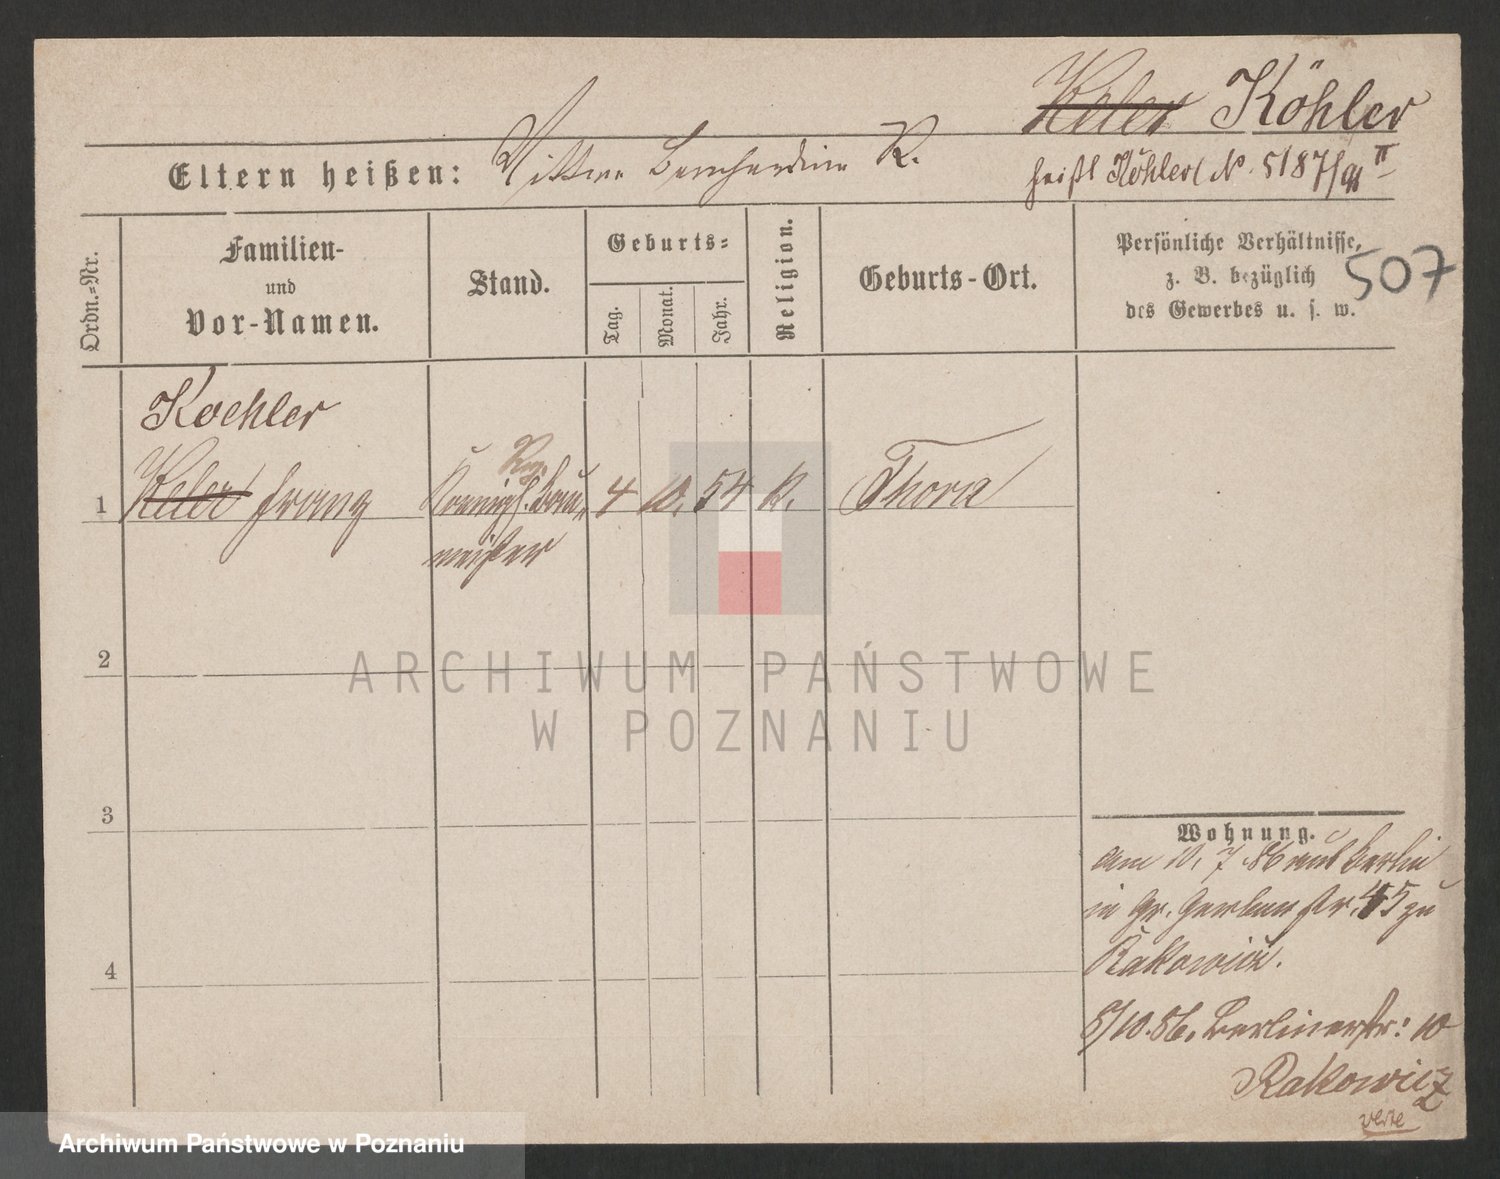 Keler Köhler
Eltern heißen: Bernhardine K.
heißt Köhler (N. 5187/91 II
Ordn.=Nr.
Familien-
und
Vor-Namen.
Stand.
Geburts=
Tag.
Monat.
Jahr.
Religion.
Geburts-Ort.
Persönliche Verhältnisse,
z. B. bezüglich
des Gewerbes u. s. w.
507
Koehler
Reg.
1 Keler Franz Koenigl. Bau= 4 10. 54 K. Thorn
meister
2
ARCHIWUM PAŃSTWOWE
W POZNANIU
3
Wohnung.
am 10. 7. 86 aus Berlin
in Gr. Gerberstr. 45 zu
Rakowicz.
5/10. 86. Berlinerstr: 10
Rakowicz
verte
4
Archiwum Państwowe w Poznaniu